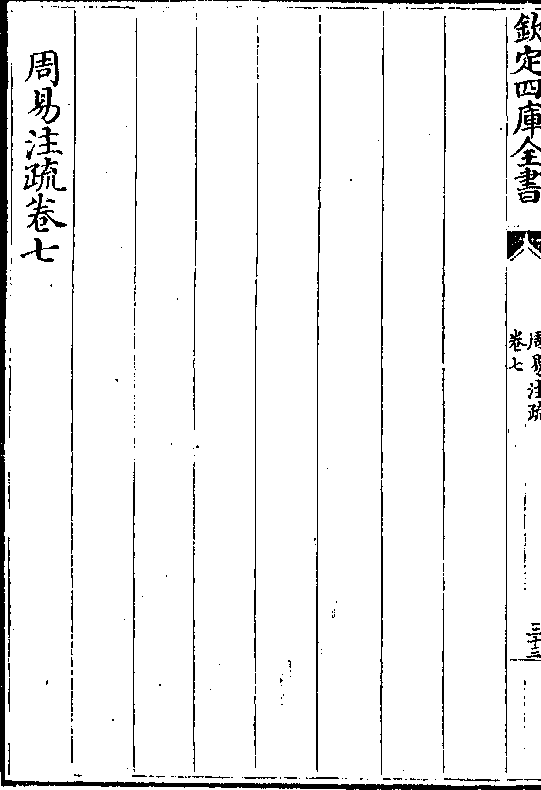 欽定四庫全書
周易注疏
卷七
三十三
周易注疏卷七